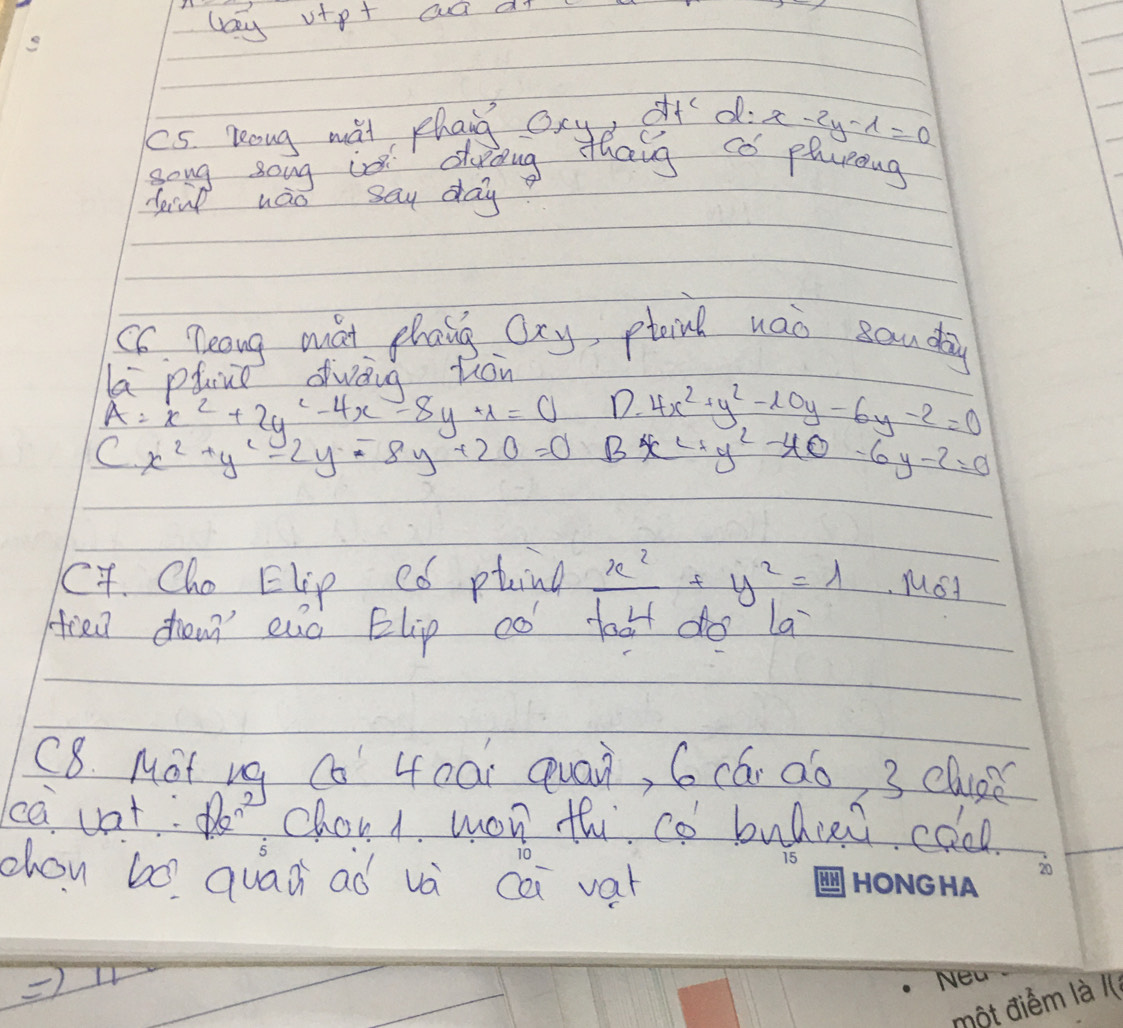 vậy vtpt của đt
C5. Trong mặt phẳng Oxy, đt d: x - 2y - 1 = 0
song song với đường thẳng có phương
trình nào sau đây?
C6. Trong mặt phẳng Oxy, ptrình nào sau đây
là ptrình đường tròn
A. x² + 2y² - 4x - 8y + 1 = 0 D. 4x² + y² - 10y - 6y - 2 = 0
C. x² + y² - 2y - 8y + 20 = 0 B. x² + y² - 40 - 6y - 2 = 0
C7. Cho Elip có ptrình x²/4 + y² = 1. Một
tiêu điểm của Elip có toạ độ là
C8. Một ng có 4 cái quần, 6 cái áo, 3 chiếc
cà vạt. Để chọn 1 món thì có bnhiêu cách
chọn bộ quần áo và cà vạt
5 10 15 20
HH HONG HA
=)
• Nếu
một điểm là I(a